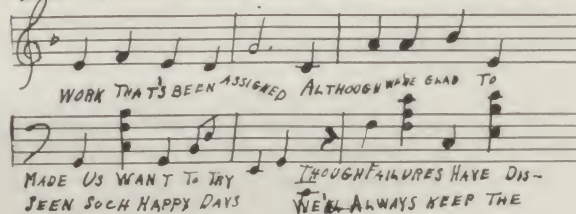 WORK THAT'S BEEN ASSIGNED ALTHOUGH WE'RE GLAD TO
MADE US WANT TO TRY THOUGH FAILURES HAVE DIS-
SEEN SUCH HAPPY DAYS WE'LL ALWAYS KEEP THE